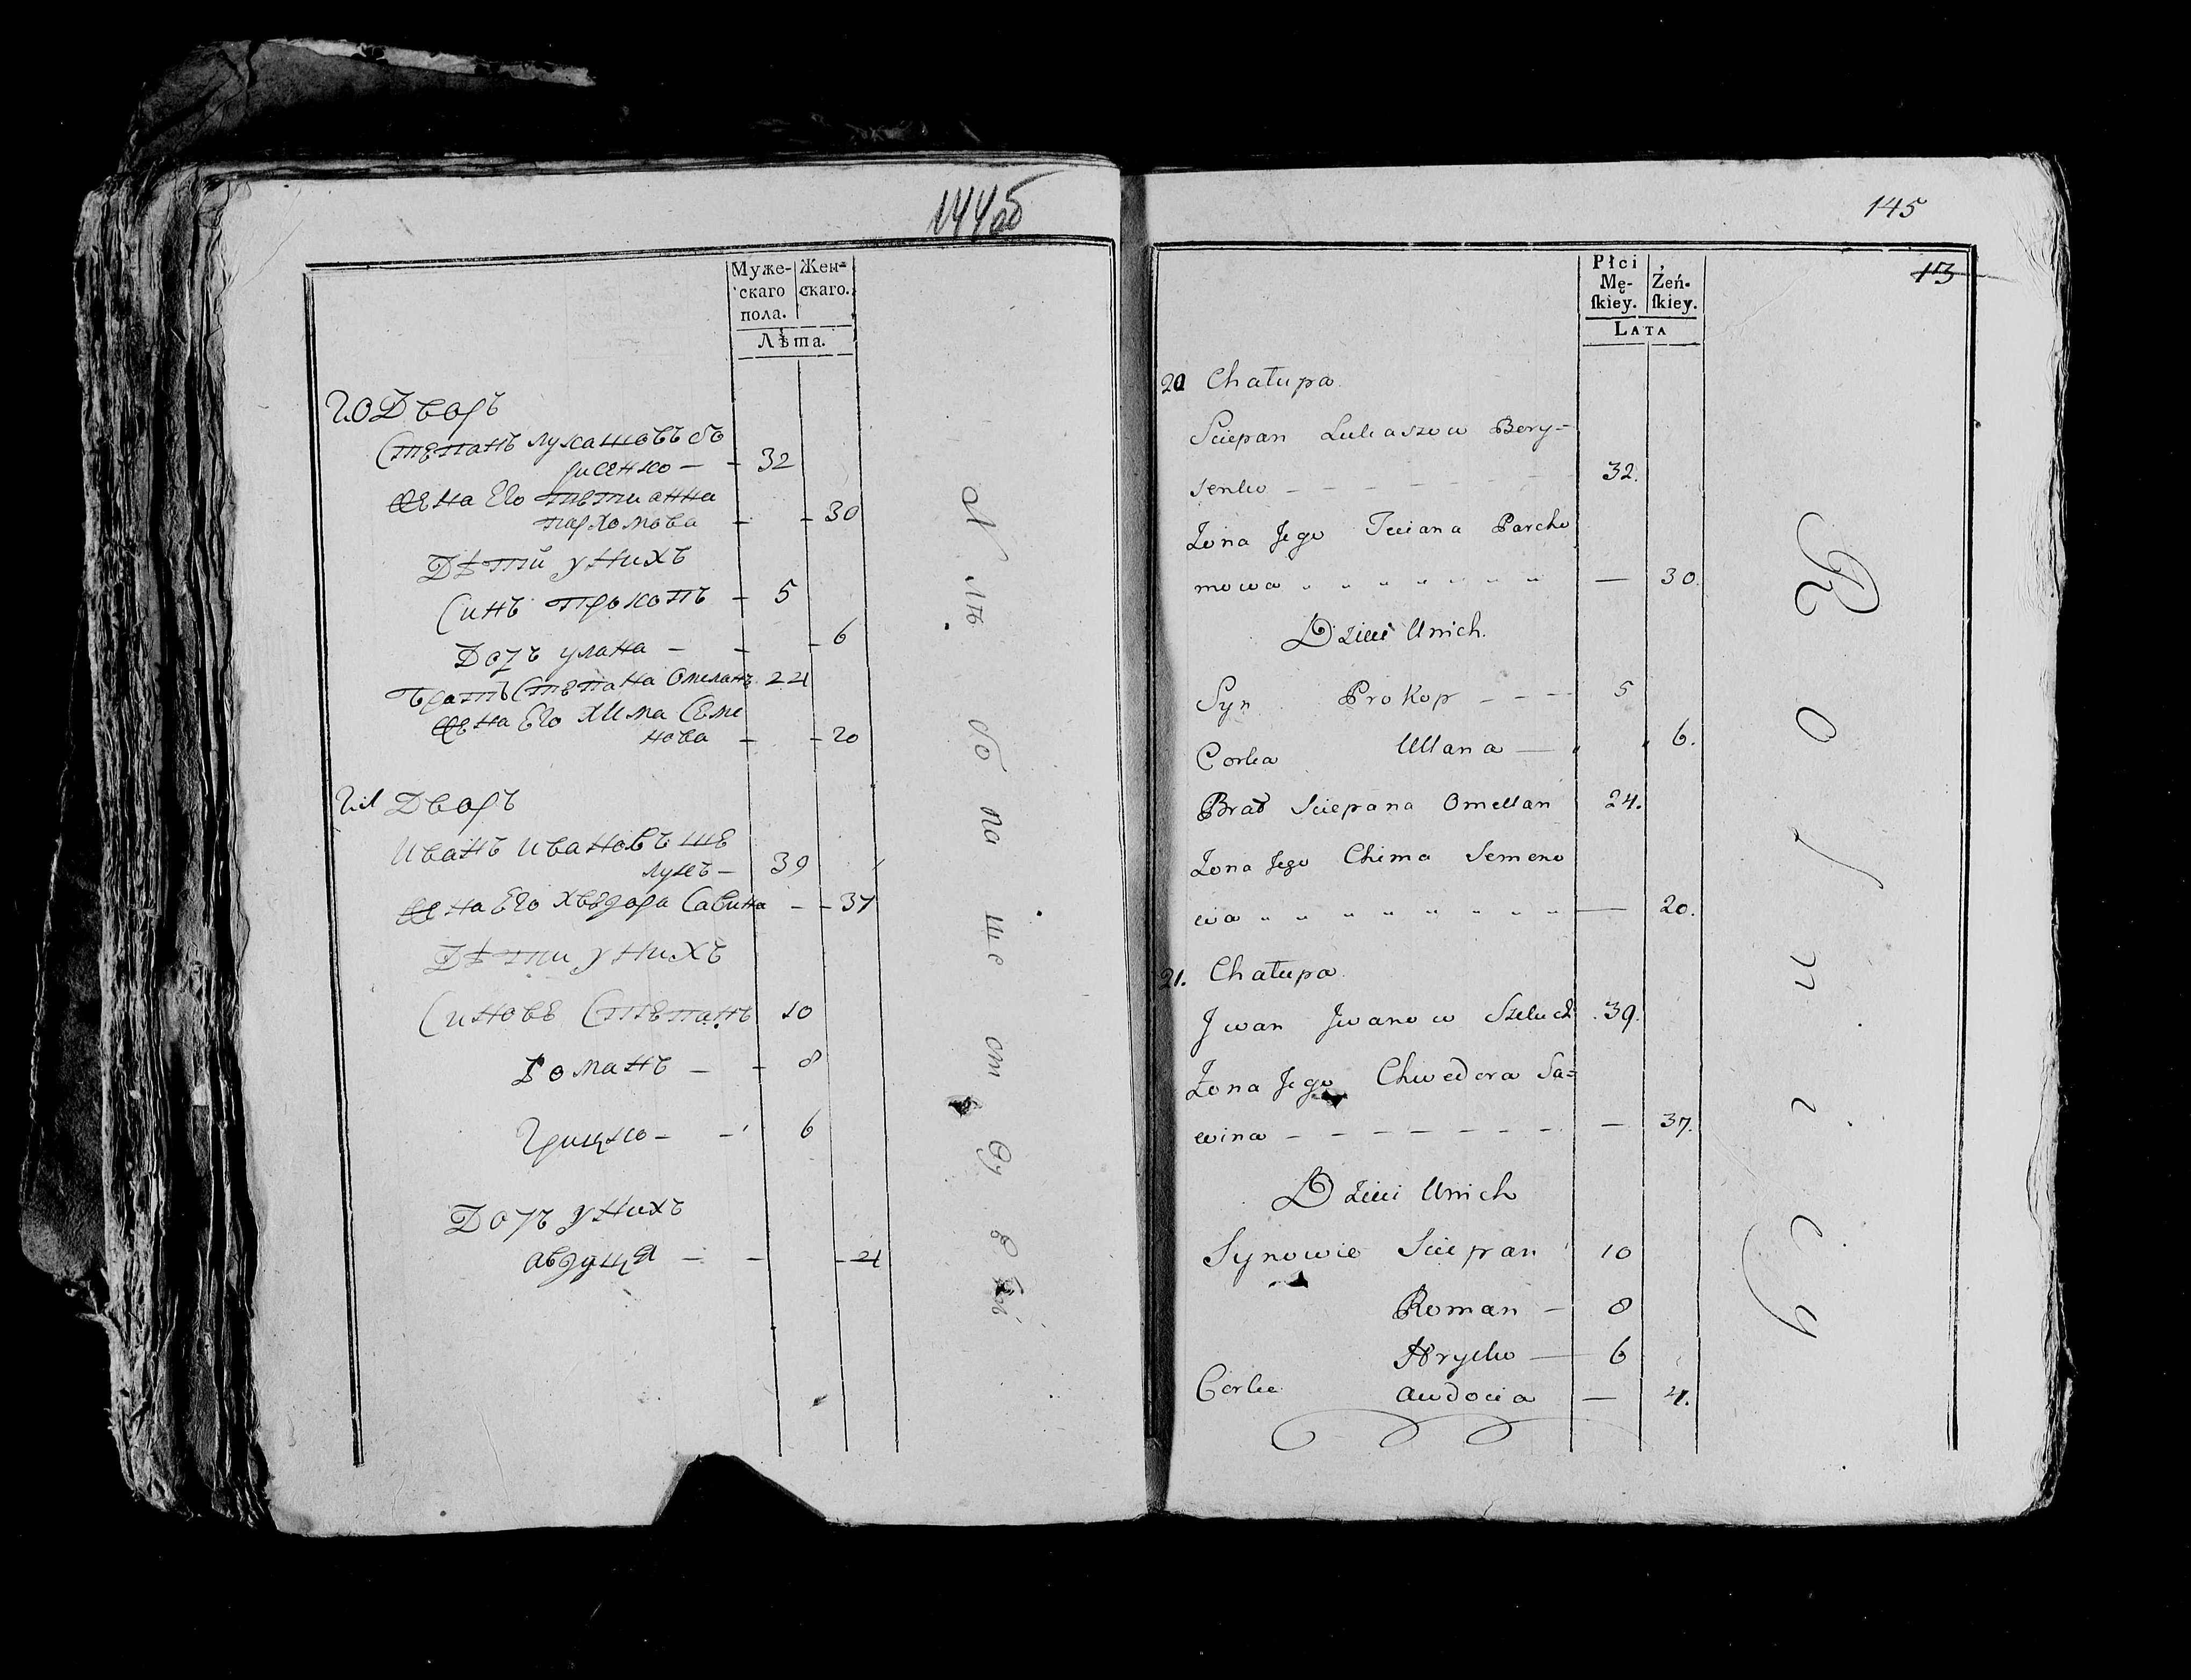 144об
Муже- Жен-
скаго скаго.
пола.
Лѣта.
20 Дворъ
Степанъ лукашовъ бо
рисенко - - 32
жена Его тетианна
пархомова - - 30
Дѣтй у Нихъ
Синъ прокопъ - 5
Дочъ улана - - - 6
братъ Степана Омеланъ 24
жена Его Хима Семе
нова - - 20
21 Дворъ
Иванъ Ивановъ ше
лукъ - 39
жена Его Хведора Савина - - 37
Дѣти у Нихъ
Синове Степанъ 10
Романъ - - 8
Грицко - - 6
Дочъ у Нихъ
авдуця - - - 4
хлѣбопашест
145
13
Płci
Mę- Żeń-
ſkiey. ſkiey.
LATA
20 Chałupa
Sciepan Lukaszow Bory-
senko - - - - - - - 32.
Żona Jego Tciana Parcho
mowa " " " " " " " — 30.
Dzieci Unich.
Syn Prokop - - - 5
Corka Ullana — " " 6.
Brat Sciepana Omellan 24.
Żona Jego Chima Semeno
wa " " " " " " " " " — 20.
21. Chałupa
Jwan Jwanow Szeluck 39.
Żona Jego Chwedora Sa=
wina - - - - - - - — 37.
Dzieci Unich
Synowie Sciepan 10
Roman — 8
Hrycko — 6
Corka Audocia — 4.
Rolnicy